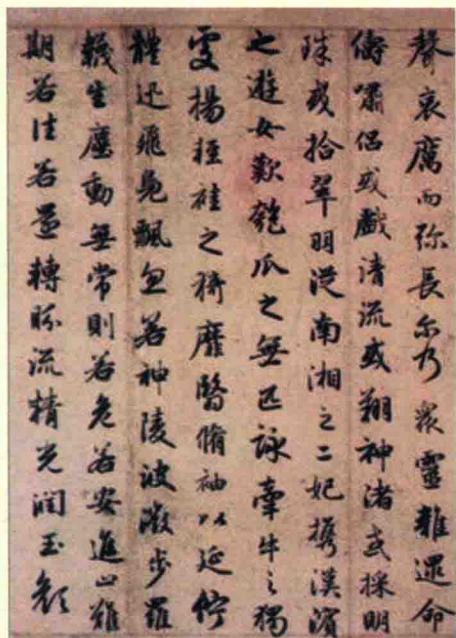 聲哀厲而弥長尓乃衆靈雜遝命
儔嘯侣或戲清流或翔神渚或採明
珠或拾翠羽從南湘之二妃攜漢濱
之遊女歎匏瓜之無匹詠牽牛之獨
處揚輕袿之猗靡翳脩袖以延佇
體迅飛鳧飄忽若神陵波微步羅
韈生塵動無常則若危若安進止難
期若往若還轉眄流精光潤玉顔